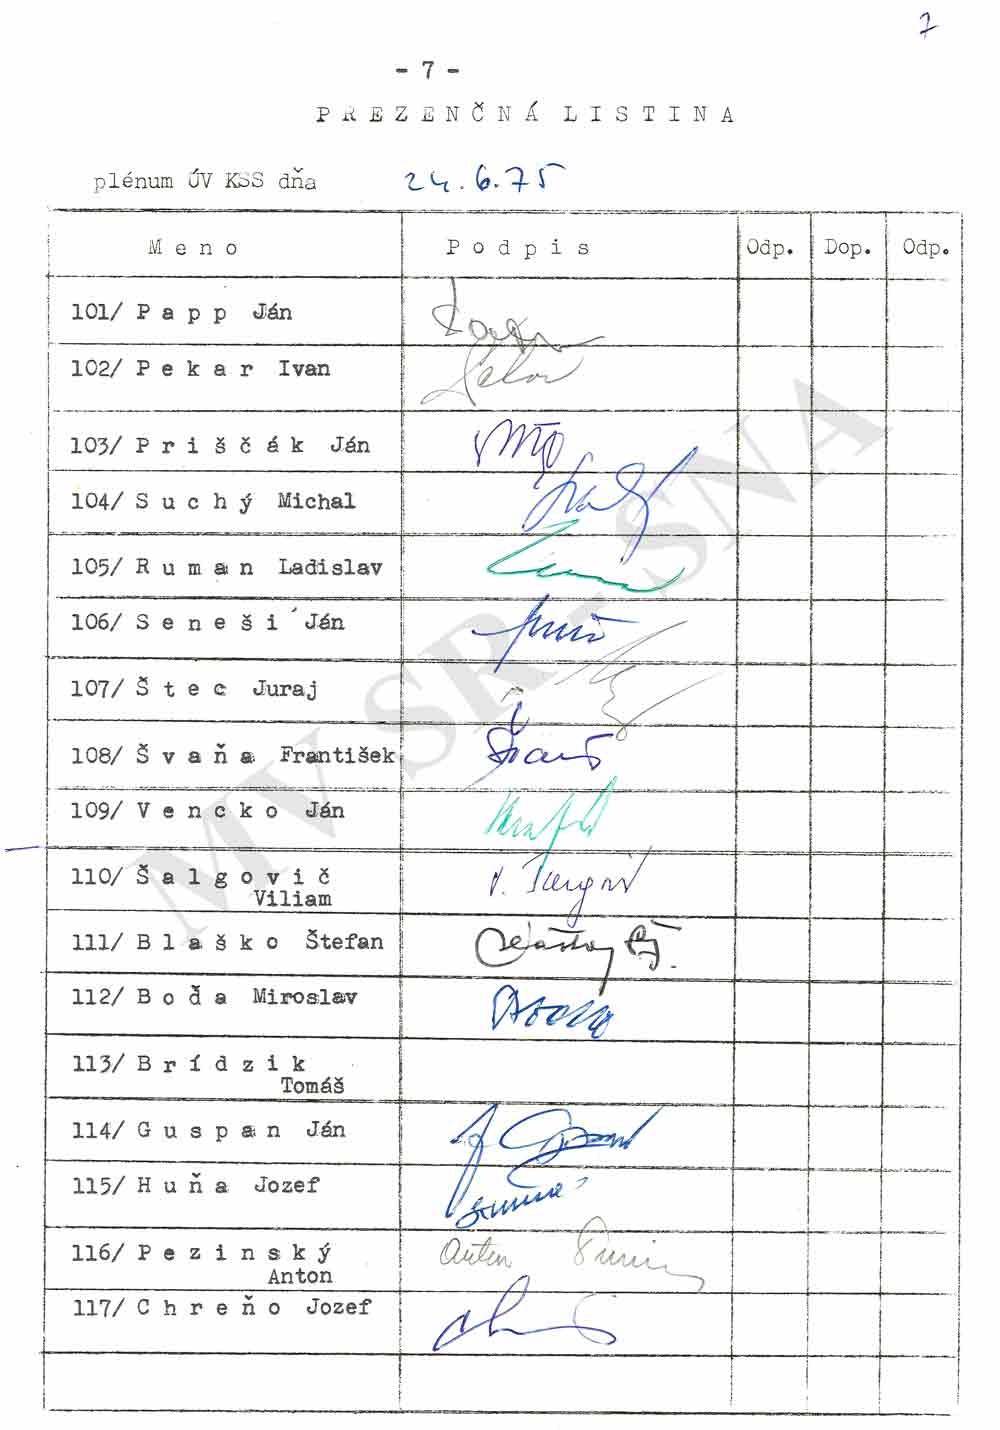 7
- 7 -
PREZENČNÁ LISTINA
plénum ÚV KSS dňa 24.6.75
Meno Podpis Odp. Dop. Odp.
101/ Papp Ján
102/ Pekar Ivan
103/ Priščák Ján
104/ Suchý Michal
105/ Ruman Ladislav
106/ Seneši Ján
107/ Štec Juraj
108/ Švaňa František
109/ Vencko Ján
110/ Šalgovič
Viliam
111/ Blaško Štefan
112/ Boďa Miroslav
113/ Brídzik
Tomáš
114/ Guspan Ján
115/ Huňa Jozef
116/ Pezinský Anton
Anton
117/ Chreňo Jozef
MV SR - SNA